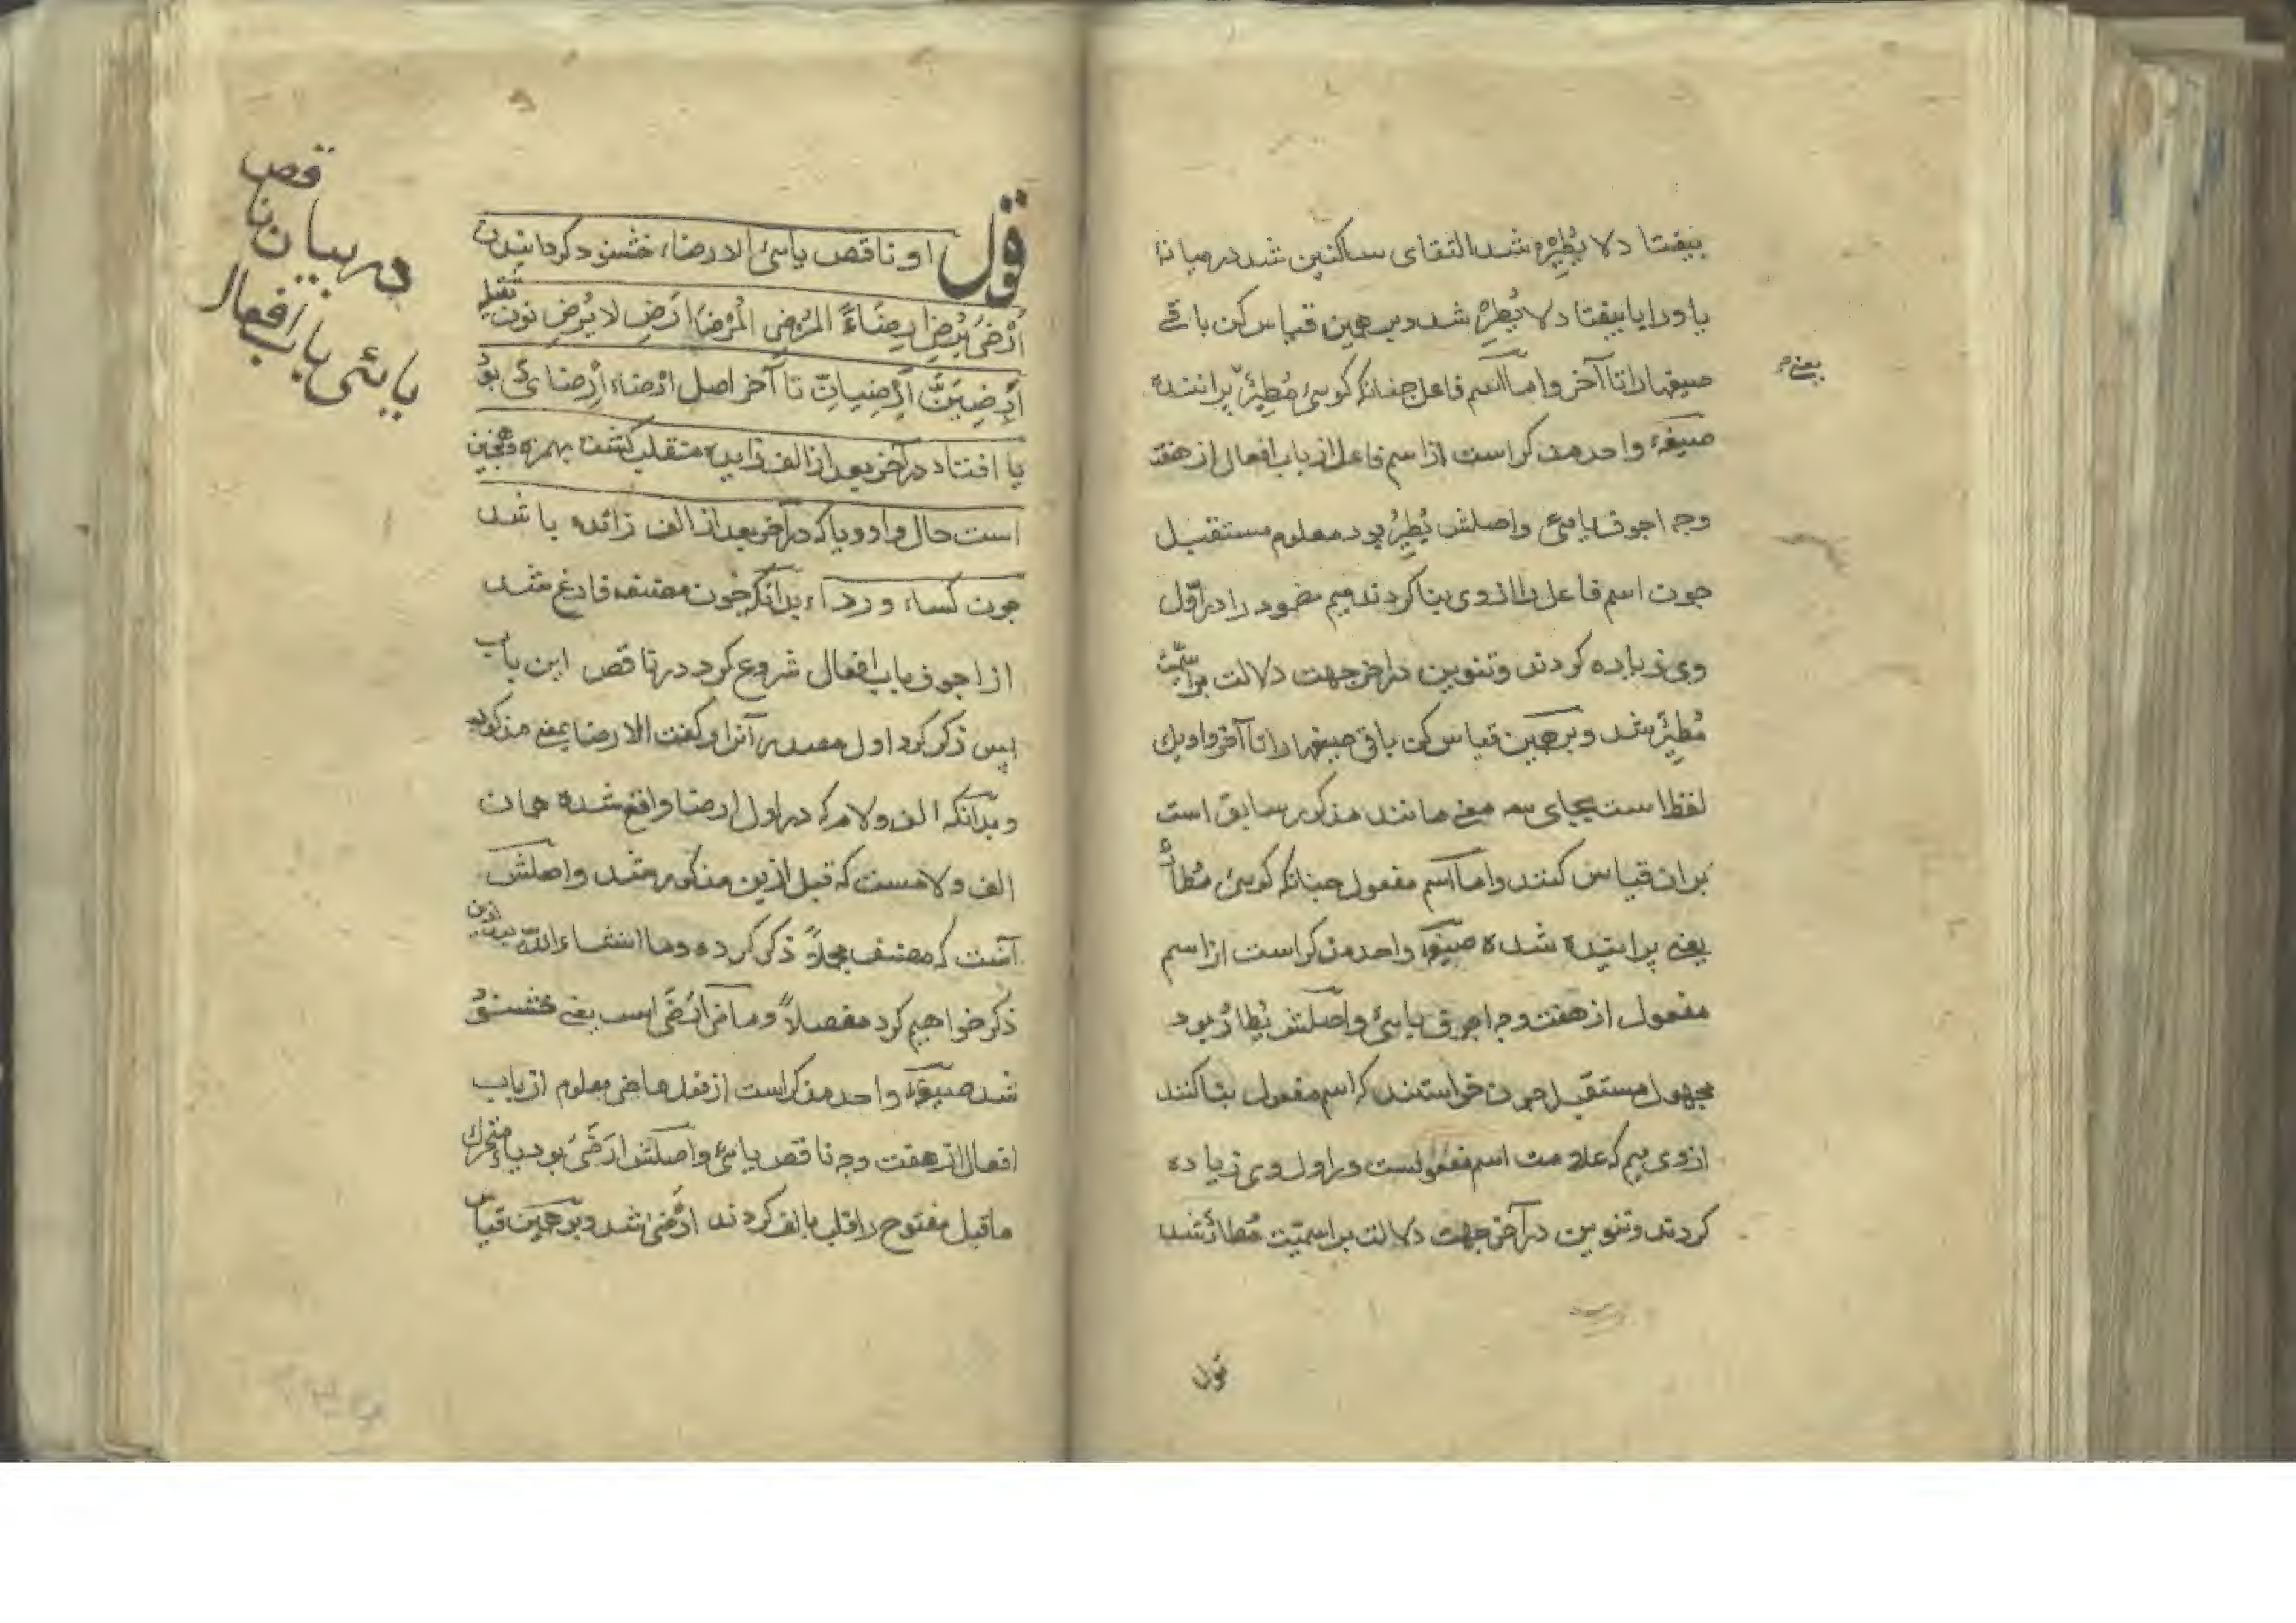 بیفتا د لا یُطِیْرْ شد التقای ساکنین شد در میانهٔ
یا و را یا بیفتا د لا یُطِرْ شد و بر همین قیاس کن باقے
صیغهارا تا آخر و اما اسم فاعل چنانکه کوسیٔ مُطِیْرٌ پراننده
یعنے
صیغهٔ واحد مذکر است از اسم فاعل از باب افعال از هفت
وجه اجوف یایٔی واصلش یُطِیْرُ بود معلوم مستقبل
جون اسم فاعل را از وی بنا کردند میم مضموم را در اوّل
وی زیاده کردند وتنوین در اخر جهت دلالت بر اسمیّت
مُطِیْرٌ شد و بر همین قیاس کن باقی صیغهارا تا آخر واو یك
لفظ است بجای سه معنے مانند مذکور سابق است
بران قیاس کنند واما اسم مفعول چنانکه کوسیٔ مُطارٌ
یعنے پرانیده شده صیغهٔ واحد مذکر است از اسم
مفعول از هفت وجه اجوف یایٔی واصلش یُطارُ بود
مجهول مستقبل جون خواستند که اسم مفعول بنا کنند
از وی میم که علامت اسم مفعولست در اول وی زیاده
کردند وتنوین در آخر جهت دلالت بر اسمیّت مُطارٌ شد
قول
قول او ناقص یایٔی الارضاء خشنود کردانیدن
اَرْضیٰ یُرْضِی اِرضَاءً المُرْضِی المُرْضَا اَرْضِ لا یُرْضِ نون ثقیله
اَرْضِیَنَّ اَرْضِیانِّ تا آخر اصل ارضاء اِرْضای بود
یا افتاد در آخر بعد از الف زایده منقلب کشت بهمزه وهمچنین
است حال واو ویا که در آخر بعد از الف زائده باشد
جون کساء و رداء بدانکه جون مصنف فارغ شد
از اجوف باب افعال شروع کرد در ناقص این باب
پس ذکر کرد اول مصدر آنرا و کفت الارضا بمعنے مذکور
وبدانکه الف ولام که در اول ارضا واقع شده همان
الف ولامست که قبل ازین مذکور شد واصلش
آنست که مصنف مجملاً ذکر کرده وما انشاءالله بعد ازین
ذکر خواهیم کرد مفصلاً وماضی اَرْضَی است یعنے خشنود
شد صیغهٔ واحد مذکر است از فعل ماضی معلوم از باب
افعال از هفت وجه ناقص یایٔی واصلش اَرْضَیَ بود یا متحرك
ماقبل مفتوح را قلب بالف کردند اَرْضیٰ شد وبر همین قیاس
در بیان ناقص
یایٔی باب افعال